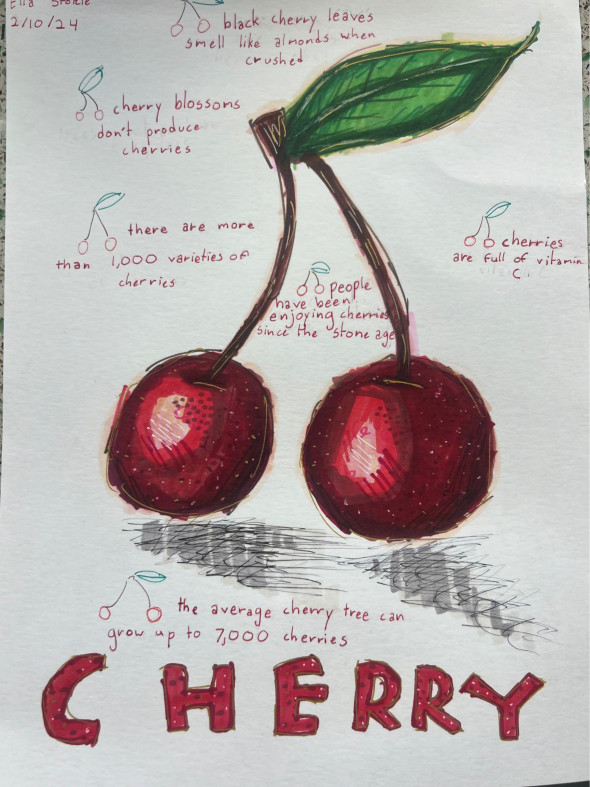 Ella
2/10/24
black cherry leaves
smell like almonds when
crushed
cherry blossoms
don't produce
cherries
there are more
than 1,000 varieties of
cherries
cherries
are full of vitamin
C.
people
have been
enjoying cherries
since the stone age
the average cherry tree can
grow up to 7,000 cherries
CHERRY